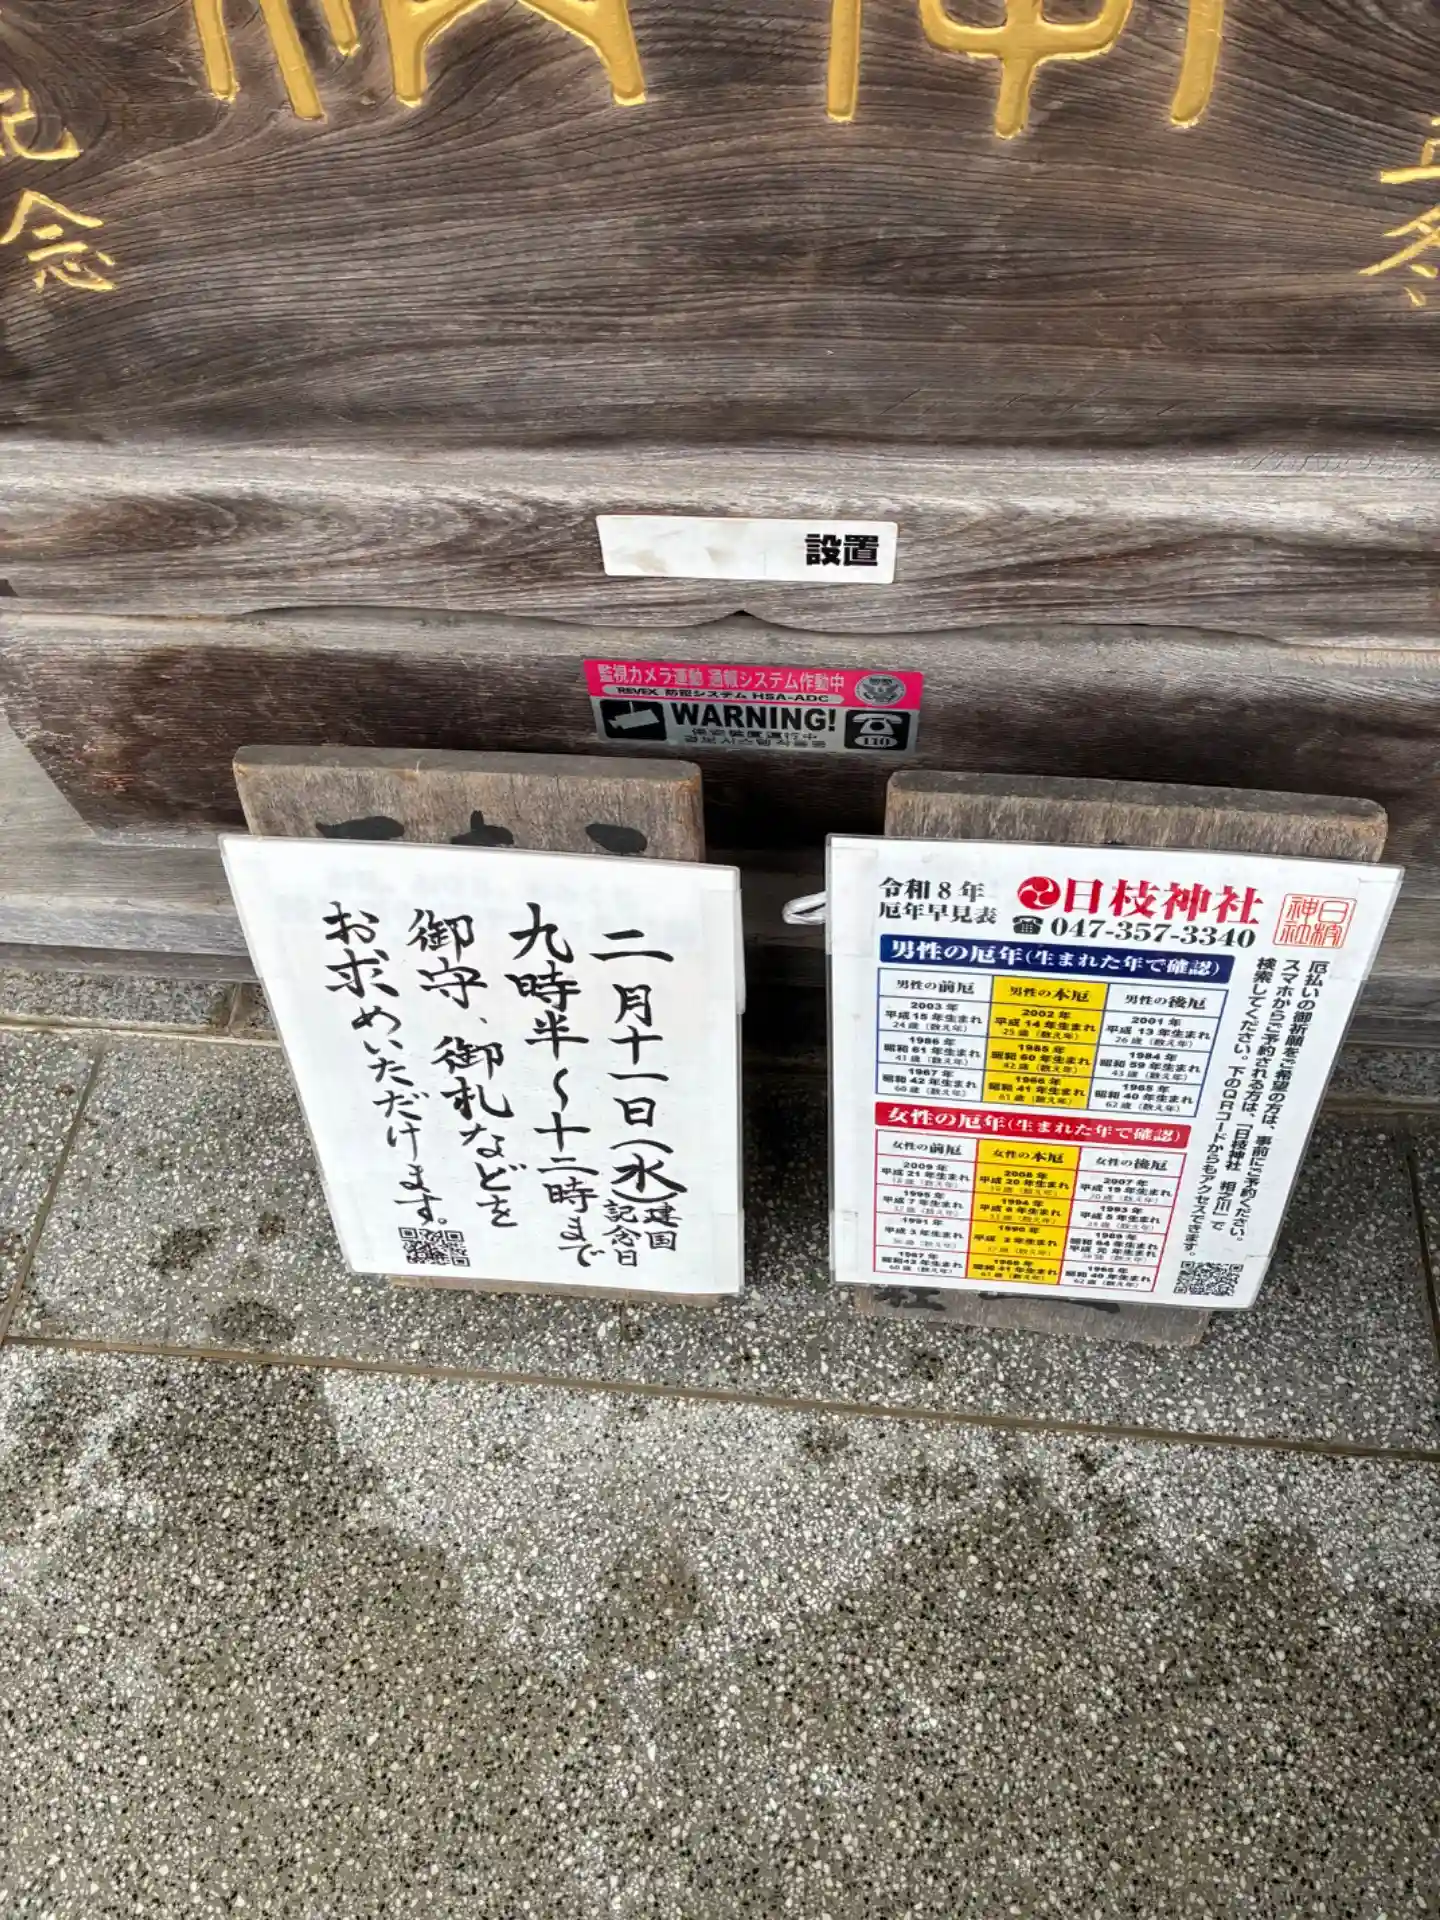 記
念
設置
監視カメラ運動 通報システム作動中
REVEX 防犯システム HSA-ADC
WARNING!
110
二月十一日(水)建国記念日
九時半～十二時まで
御守、御札などを
お求めいただけます。
令和8年
厄年早見表
日枝神社
☎ 047-357-3340
日枝神社
男性の厄年(生まれた年で確認)
男性の前厄 男性の本厄 男性の後厄
2003年 2002年 2001年
平成15年生まれ 平成14年生まれ 平成13年生まれ
24歳(数え年) 25歳(数え年) 26歳(数え年)
1986年 1985年 1984年
昭和61年生まれ 昭和60年生まれ 昭和59年生まれ
41歳(数え年) 42歳(数え年) 43歳(数え年)
1967年 1966年 1965年
昭和42年生まれ 昭和41年生まれ 昭和40年生まれ
60歳(数え年) 61歳(数え年) 62歳(数え年)
女性の厄年(生まれた年で確認)
女性の前厄 女性の本厄 女性の後厄
2009年 2008年 2007年
平成21年生まれ 平成20年生まれ 平成19年生まれ
18歳(数え年) 19歳(数え年) 20歳(数え年)
1995年 1994年 1993年
平成7年生まれ 平成6年生まれ 平成5年生まれ
32歳(数え年) 33歳(数え年) 34歳(数え年)
1991年 1990年 1989年
平成3年生まれ 平成2年生まれ 昭和64年生まれ
平成元年生まれ
36歳(数え年) 37歳(数え年) 38歳(数え年)
1967年 1966年 1965年
昭和42年生まれ 昭和41年生まれ 昭和40年生まれ
60歳(数え年) 61歳(数え年) 62歳(数え年)
厄払いの御祈願をご希望の方は、事前にご予約ください。
スマホからご予約される方は、「日枝神社 相之川」で
検索してください。下のQRコードからもアクセスできます。